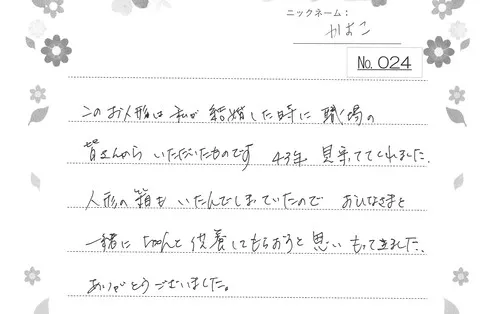 ニックネーム：
かおこ
No. 024
このお人形は私が結婚した時に職場の
皆さんからいただいたものです 43年見守ってくれました。
人形の箱もいたんでしまっていたので おひなさまと
一緒にちゃんと供養してもらおうと思いもってきました、
ありがとうございました。